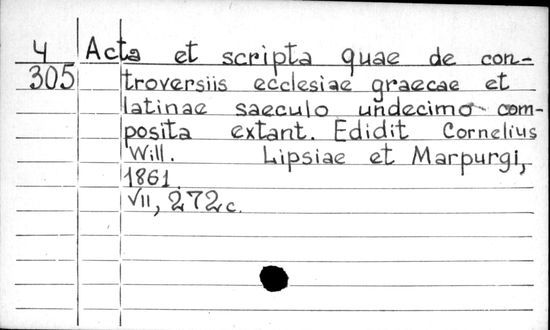 4 Acta et scripta quae de con-
305 troversiis ecclesiae graecae et
latinae saeculo undecimo com-
posita extant. Edidit Cornelius
Will. Lipsiae et Marpurgi,
1861.
VII, 272 c.